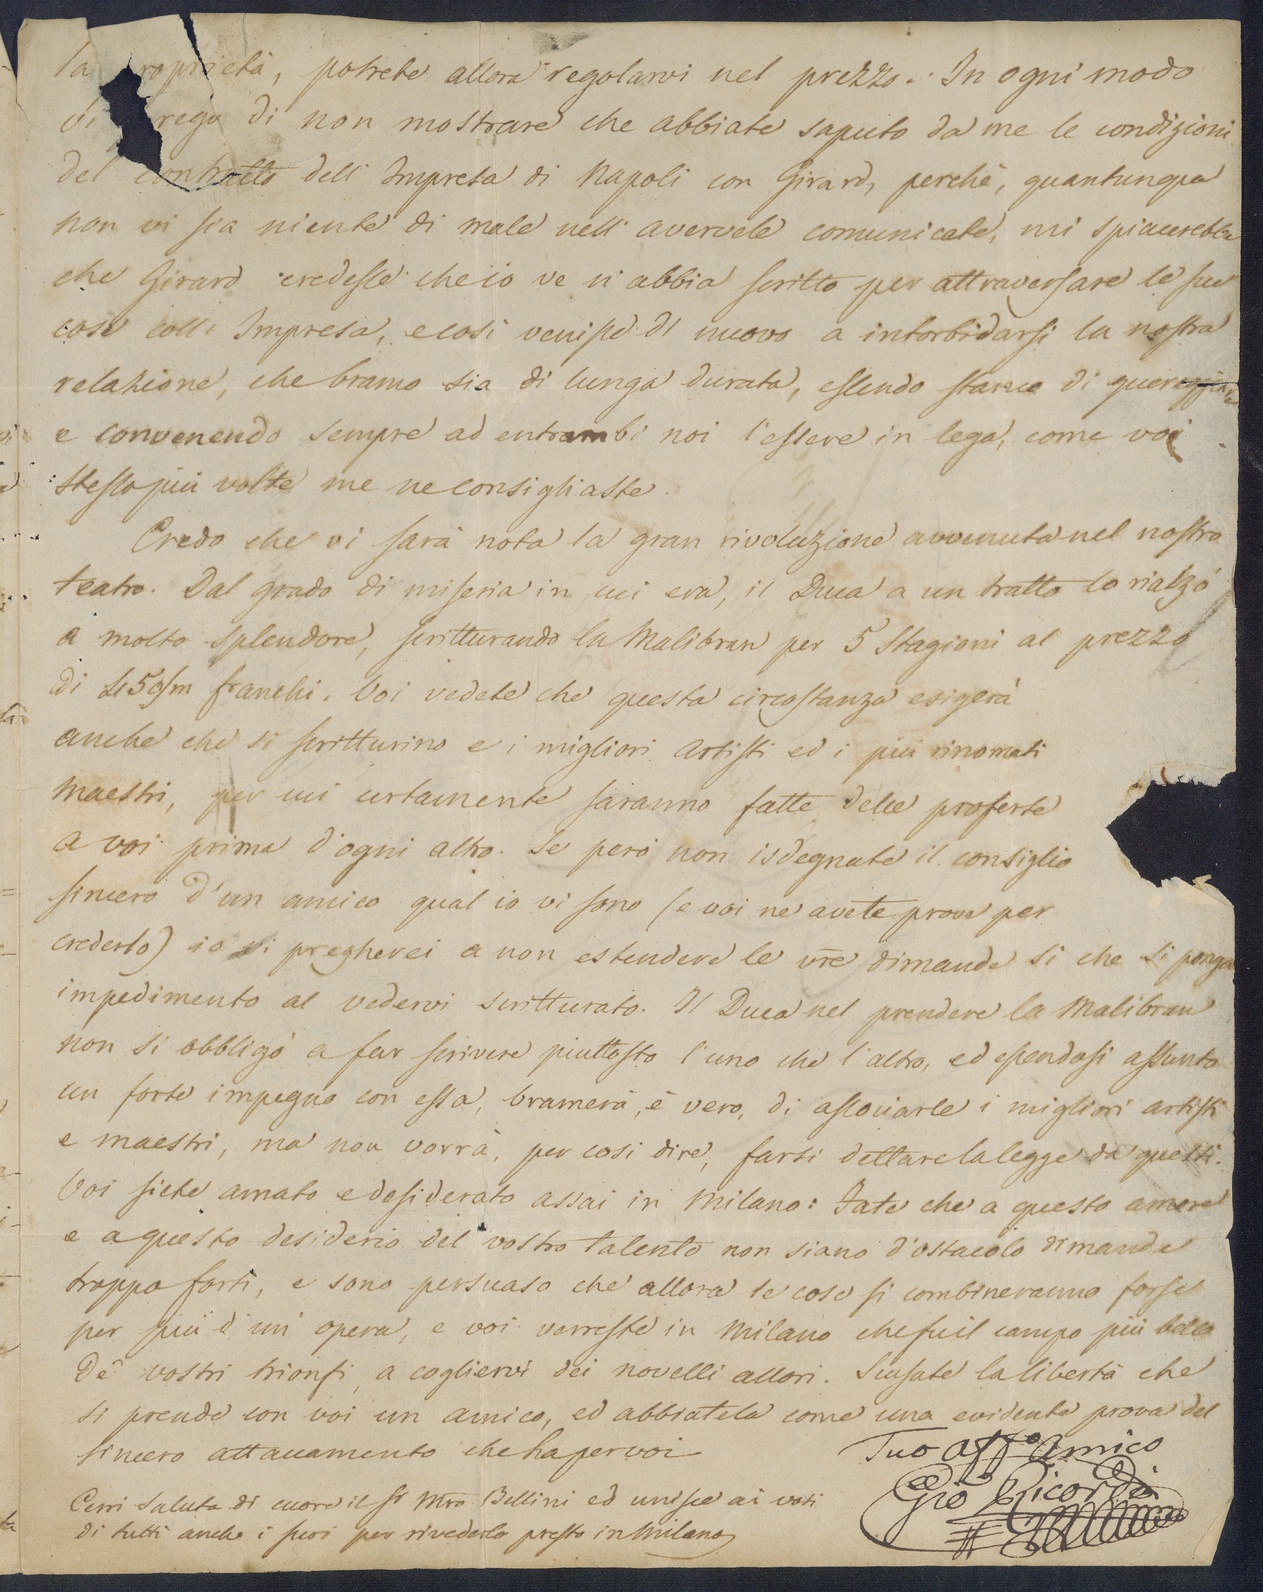 la roprietà, potrete allora regolarvi nel prezzo. In ogni modo
vi rego di non mostrare che abbiate saputo da me le condizioni
del contratto dell'Impresa di Napoli con Girard, perchè, quantunque
non vi sia niente di male nell'avervele comunicate, mi spiacerebbe
che Girard credesse che io ve n'abbia scritto per attraversare le sue
cose coll'Impresa, e così venisse di nuovo a intorbidarsi la nostra
relazione, che bramo sia di lunga durata, essendo stanco di
e convenendo sempre ad entrambi noi l'essere in lega, come voi
stesso più volte me ne consigliaste.
Credo che vi sarà nota la gran rivoluzione avvenuta nel nostro
teatro. Dal grado di miseria in cui era, il Duca a un tratto lo rialzò
a molto splendore, scritturando la Malibran per 5 Stagioni al prezzo
di franchi. Voi vedete che questa circostanza esigerà
anche che si scritturino e i migliori Artisti ed i più rinomati
Maestri, per cui certamente saranno fatte delle proferte
a voi prima d'ogni altro. Se però non isdegnate il consiglio
sincero d'un amico qual io vi sono (e voi ne avete prove per
crederlo) io vi pregherei a non estendere le vre dimande sì che si ponga
impedimento al vedervi scritturato. Il Duca nel prendere la Malibran
non si obbligò a far scrivere piuttosto l'uno che l'altro, ed essendosi assunto
un forte impegno con essa, bramerà, è vero, di associarle i migliori artisti
e maestri, ma non vorrà, per così dire, farsi dettare la legge da questi.
Voi siete amato e desiderato assai in Milano: Fate che a questo amore
e a questo desiderio del vostro talento non siano d'ostacolo dimande
troppo forti, e sono persuaso che allora le cose si combineranno forse
per più d'un opera, e voi verreste in Milano che fu il campo più bello
de' vostri trionfi, a cogliervi dei novelli allori. Scusate la libertà che
si prende con voi un amico, ed abbiatela come una evidente prova del
sincero attaccamento che ha per voi
Tuo Affo Amico
Gio Ricordi
Cerri saluta di cuore il Sr Mro Bellini ed unisce ai voti
di tutti anche i suoi per rivederlo presto in Milano